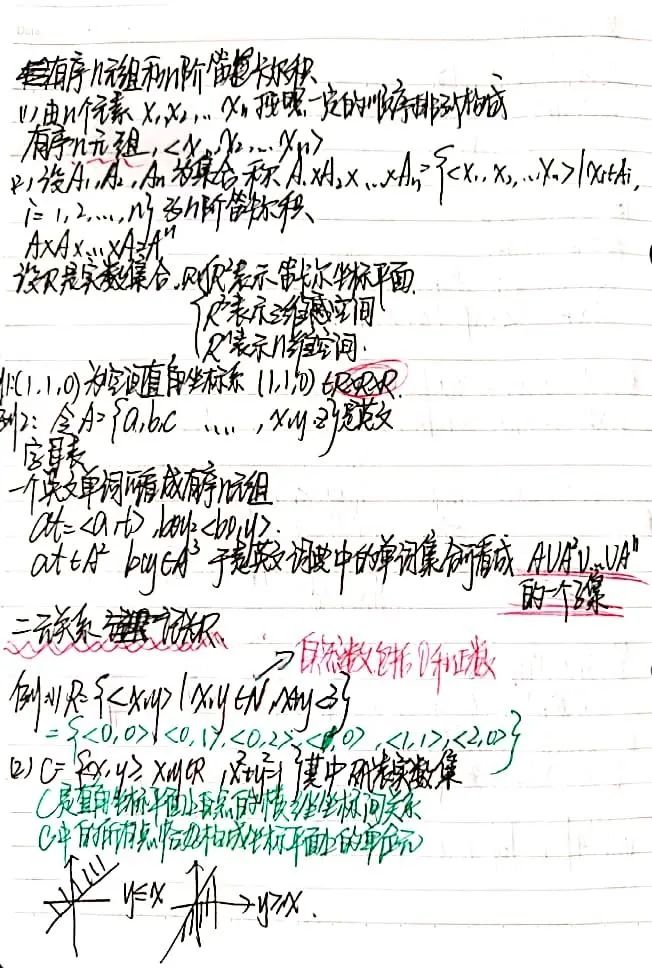 有序n元组和n阶笛卡尔积
(1) 由n个元素 x₁,x₂,…xₙ 按照一定的顺序排列构成
有序n元组,<x₁,x₂,…xₙ>
(2) 设A₁,A₂,Aₙ为集合 称 A₁×A₂×…×Aₙ={<x₁,x₂,…xₙ>|xᵢ∈Aᵢ,
i=1,2,…,n} 为n阶笛卡尔积
A×A×…×A=Aⁿ
设R是实数集合,则R²表示笛卡尔坐标平面.
R³表示三维空间
Rⁿ表示n维空间.
例1:(1,1,0)为空间直角坐标系 (1,1,0)∈R×R×R.
例2: 令A={a,b,c ……,x,y,z}是英文
字母表
一个英文单词可看成有序n元组
at=<a,t>,boy=<b,o,y>.
at∈A² boy∈A³ 于是英文词典中的单词集合可看成 A∪A²∪…∪Aⁿ
的一个子集
二元关系 记法R
自然数包括0和正数
例(1) R={<x,y>|x,y∈N,x+y<3}
={<0,0>,<0,1>,<0,2>,<1,0>,<1,1>,<2,0>}
(2) C={<x,y>,x,y∈R,x²+y²=1}其中R代表实数集
C是直角坐标平面上点的横纵坐标间关系
C中的所有点恰好构成坐标平面上的单位元
y≤x y≥x.